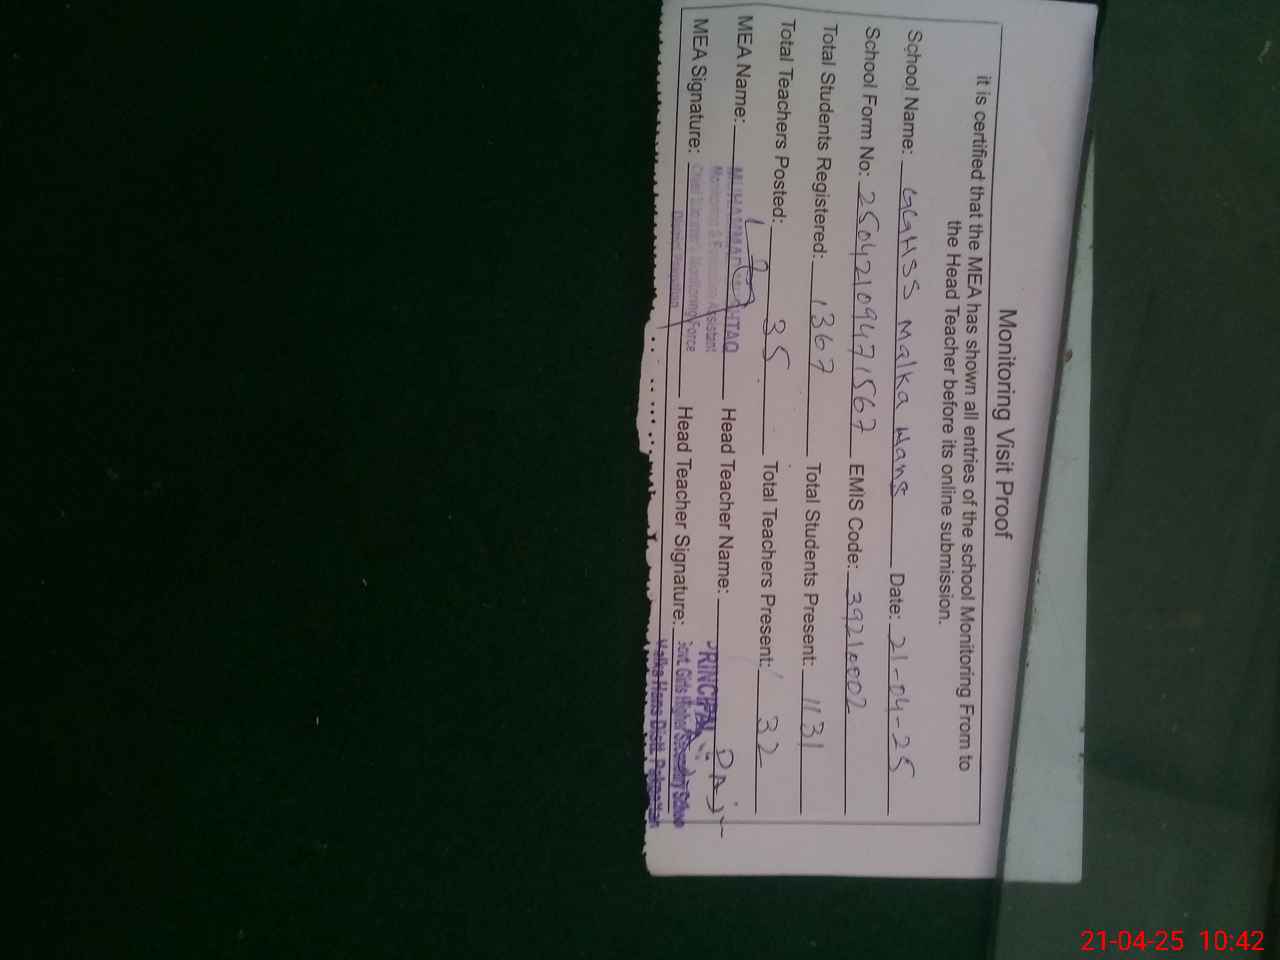 Monitoring Visit Proof
it is certified that the MEA has shown all entries of the school Monitoring From to
the Head Teacher before its online submission.
School Name: GGHSS Malka Hans Date: 21-04-25
School Form No: 25042109471567 EMIS Code: 39210002
Total Students Registered: 1367 Total Students Present: 1131
Total Teachers Posted: 35 Total Teachers Present: 32
MEA Name: MUHAMMAD Head Teacher Name:
MEA Signature: Head Teacher Signature:
Monitoring & Evaluation Assistant
Chief Minister's Monitoring Force
PRINCIPAL
Govt. Girls Higher Secondary School
Malka Hans Distt. Pakpattan
21-04-25 10:42